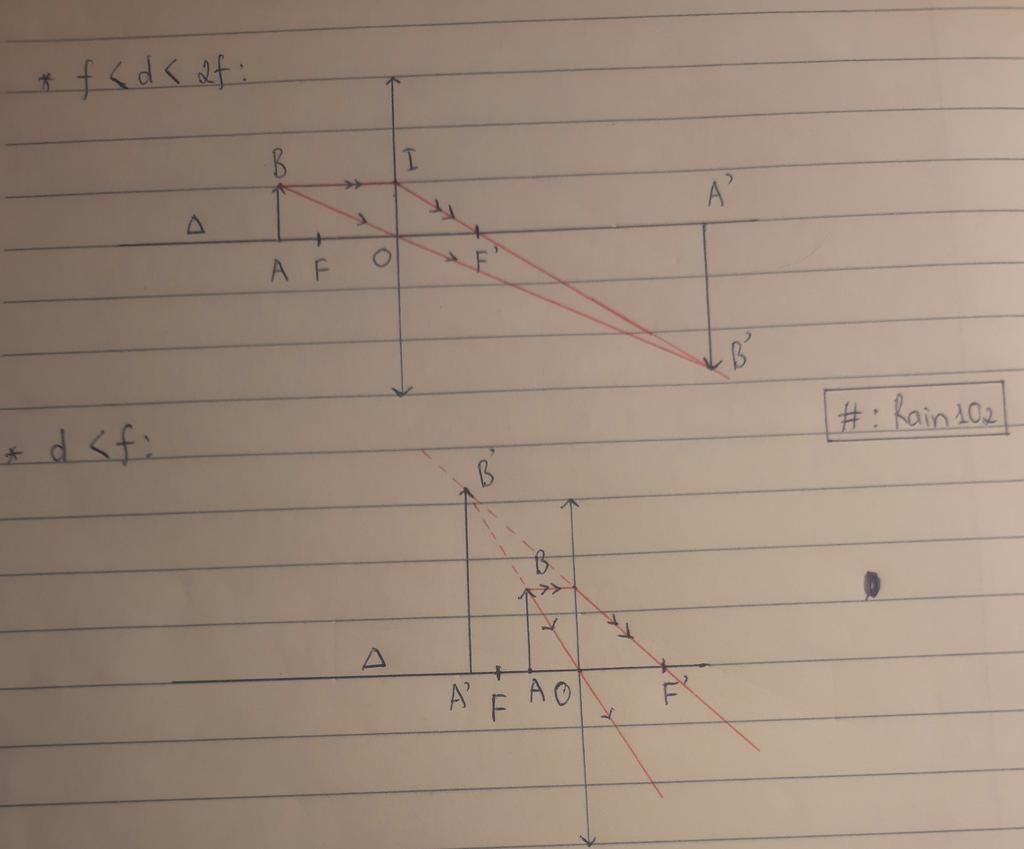 * f < d < 2f:
B
I
A'
Δ
A
F
O
F'
B'
#: Rain102
* d < f:
B'
B
Δ
A'
F
A
O
F'